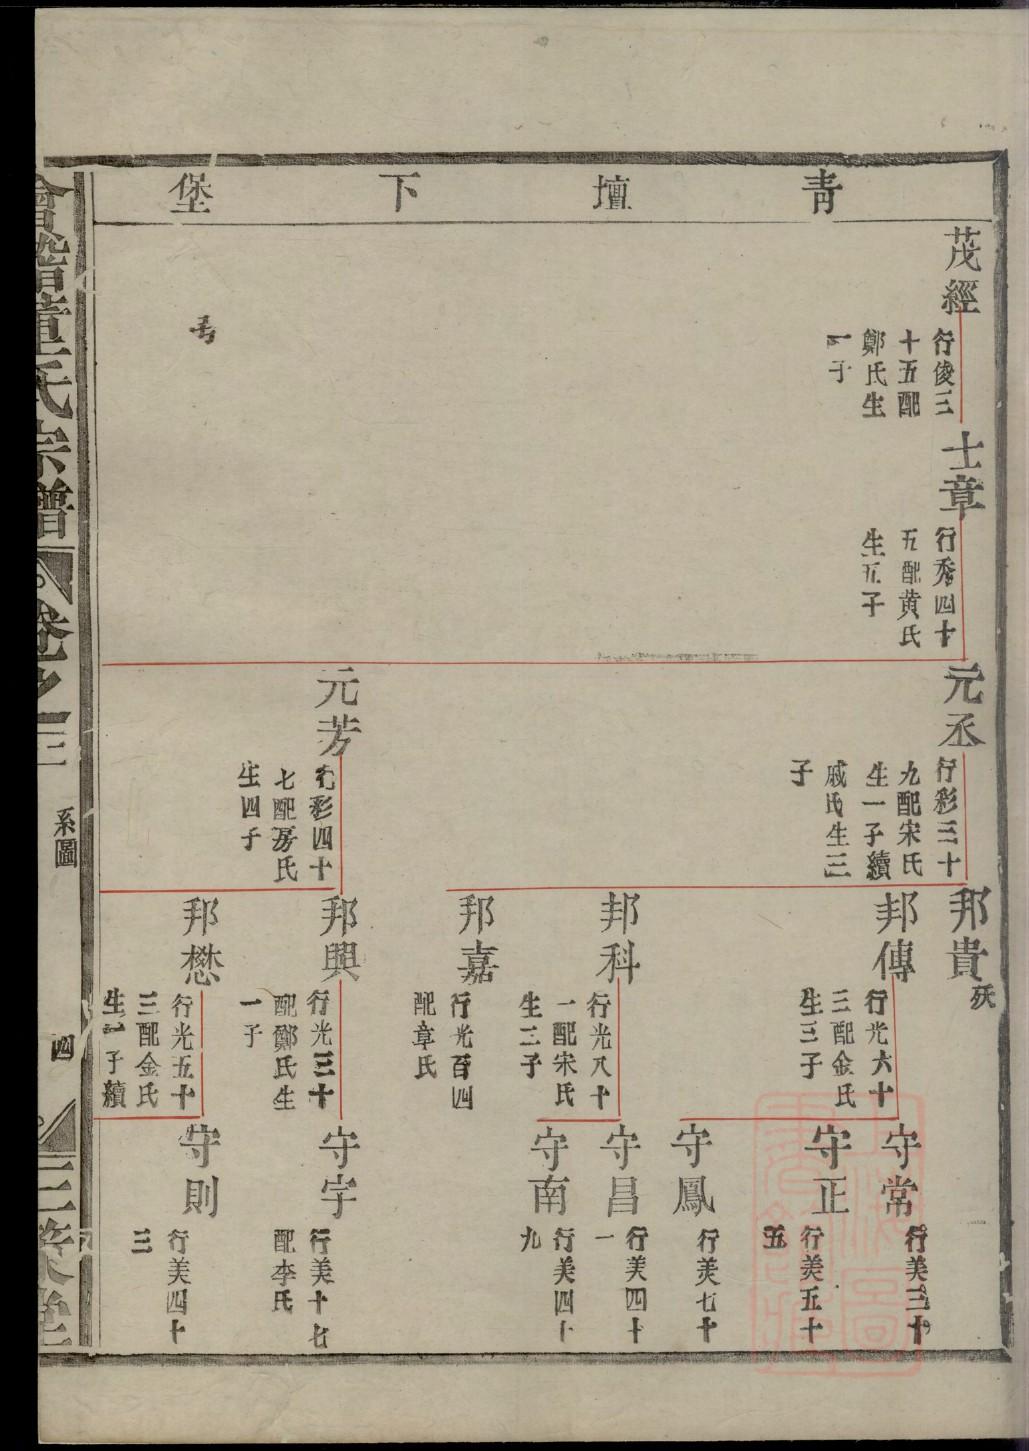 青壇下堡
茂經
行俊三
十五配
鄭氏生
一子
士章
行秀四十
五配黄氏
生五子
元丞
行彩三十
九配宋氏
生一子續
戚氏生三
子
元芳
行彩四十
七配房氏
生四子
邦貴
殀
邦傳
行光六十
三配金氏
生三子
邦科
行光八十
一配宋氏
生二子
邦嘉
行光百四
配章氏
邦興
行光三十
配鄭氏生
一子
邦懋
行光五十
三配金氏
生一子續
守常
行美三十
守正
行美五十
五
守鳳
行美七十
守昌
行美四十
一
守南
行美四十
九
守宇
行美十七
配李氏
守則
行美四十
三
會稽董氏宗譜
卷之三
系圖
四
三策堂